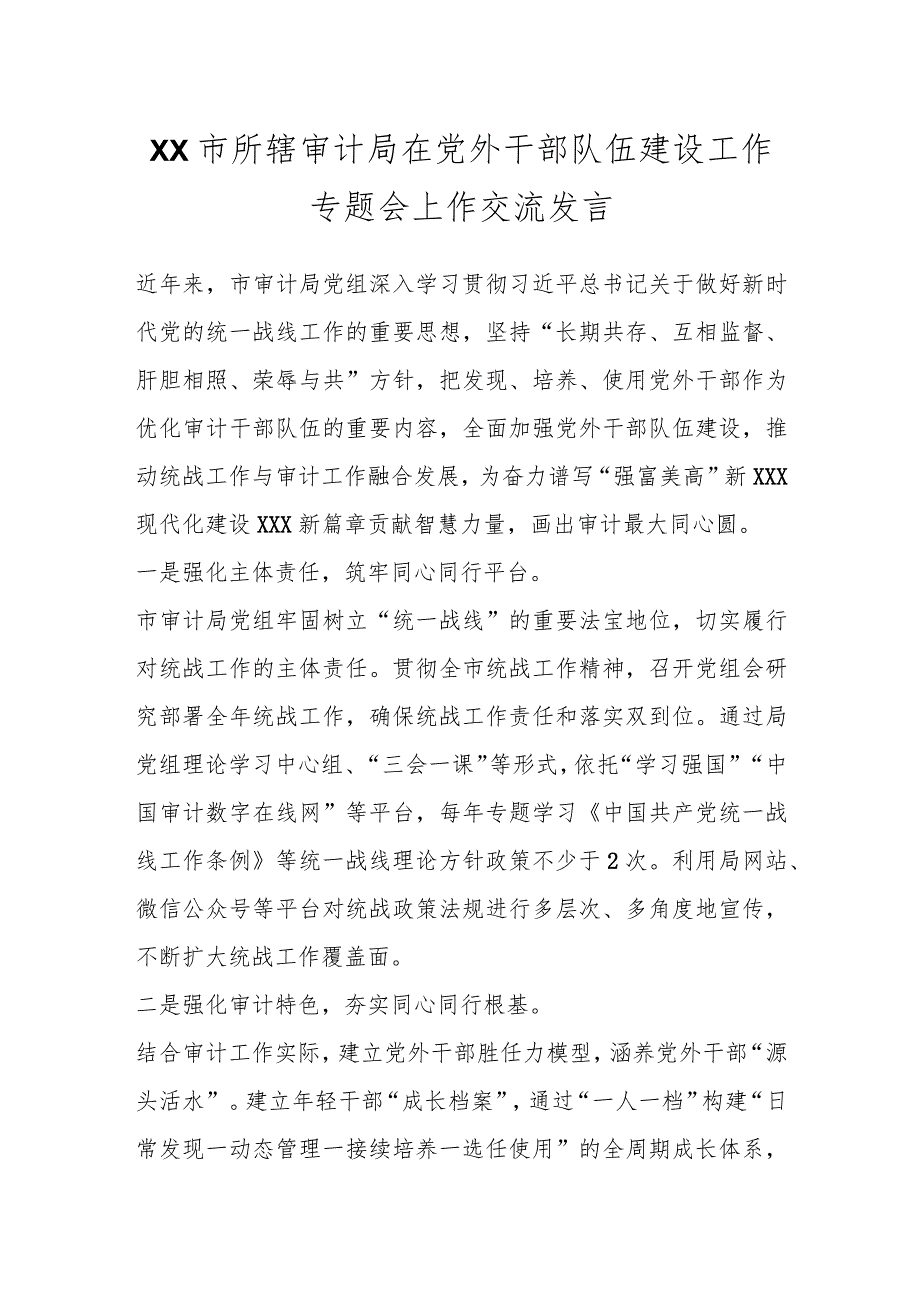 XX市所辖审计局在党外干部队伍建设工作
专题会上作交流发言
近年来，市审计局党组深入学习贯彻习近平总书记关于做好新时
代党的统一战线工作的重要思想，坚持“长期共存、互相监督、
肝胆相照、荣辱与共”方针，把发现、培养、使用党外干部作为
优化审计干部队伍的重要内容，全面加强党外干部队伍建设，推
动统战工作与审计工作融合发展，为奋力谱写“强富美高”新XXX
现代化建设XXX新篇章贡献智慧力量，画出审计最大同心圆。
一是强化主体责任，筑牢同心同行平台。
市审计局党组牢固树立“统一战线”的重要法宝地位，切实履行
对统战工作的主体责任。贯彻全市统战工作精神，召开党组会研
究部署全年统战工作，确保统战工作责任和落实双到位。通过局
党组理论学习中心组、“三会一课”等形式，依托“学习强国”“中
国审计数字在线网”等平台，每年专题学习《中国共产党统一战
线工作条例》等统一战线理论方针政策不少于2次。利用局网站、
微信公众号等平台对统战政策法规进行多层次、多角度地宣传，
不断扩大统战工作覆盖面。
二是强化审计特色，夯实同心同行根基。
结合审计工作实际，建立党外干部胜任力模型，涵养党外干部“源
头活水”。建立年轻干部“成长档案”，通过“一人一档”构建“日
常发现一动态管理一接续培养一选任使用”的全周期成长体系，